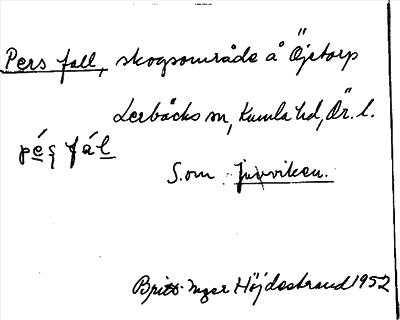 Pers fall, skogsområde å Öjetorp
Lerbäcks sn, Kumla hd, Ör. l.
pés fál
S. om Juvviken.
Britt-Inger Höjdestrand 1952